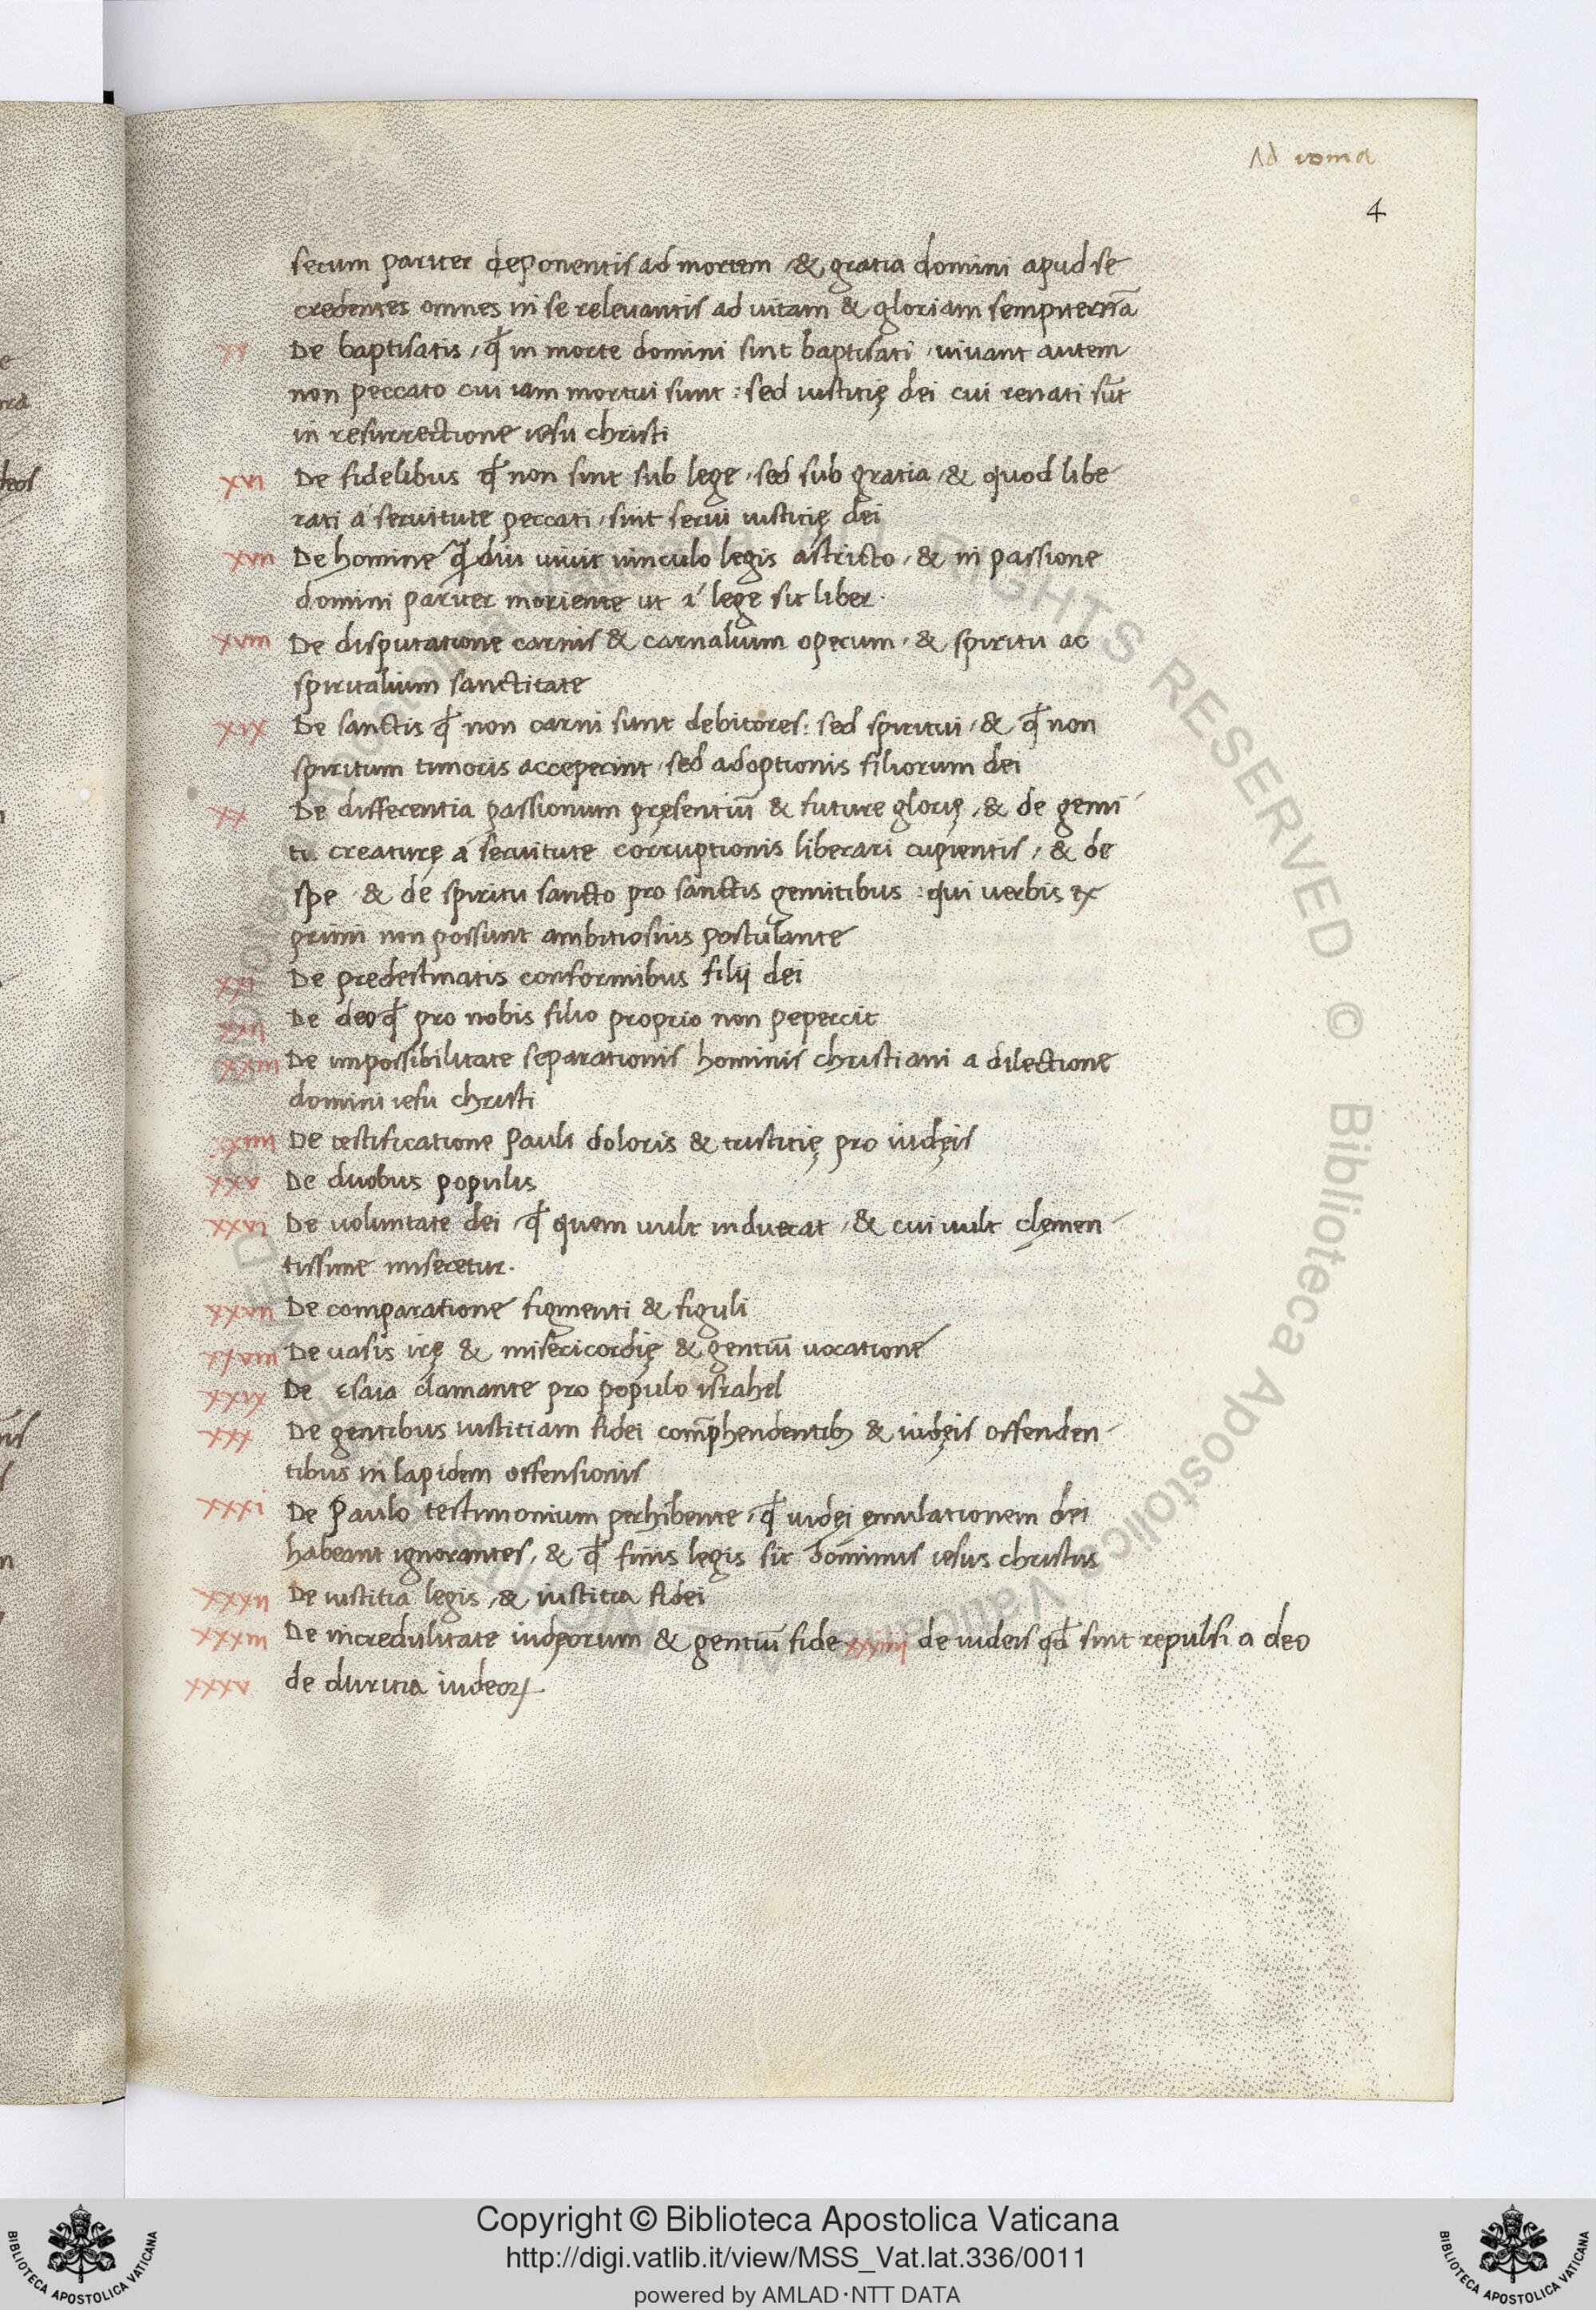 Ad roma
4
secum pariter deponentis ad mortem, & gratia domini apud se
credentes omnes in se relevantis ad vitam & gloriam sempiternā
xv De baptisatis, qđ in morte domini sint baptisati, vivant autem
non peccato cui iam mortui sunt: sed iusticię dei cui renati sūt
in resurrectione iesu christi
xvi De fidelibus qđ non sint sub lege, sed sub gratia, & quod libe
rati á servitute peccati, sint servi iusticię dei
xvii De homine ꝙ̄ diu vivit vinculo legis astricto, & in passione
domini pariter moriente ut á lege sit liber.
xviii De disputatione carnis & carnalium operum, & spiritu ac
spiritalium sanctitate
xix De sanctis qđ non carni sunt debitores: sed spiritui, & qđ non
spiritum timoris acceperint, sed adoptionis filiorum dei
xx De differentia passionum pręsentiū & future glorię, & de gemi-
tu creaturę á servitute corruptionis liberari cupientis, & de
spe & de spiritu sancto pro sanctis gemitibus: qui verbis ex
primi non possunt ambitiosius postulante
xxi De predestinatis conformibus filij dei
xxii De deo qđ pro nobis filio proprio non pepercit
xxiii De impossibilitate separationis hominis christiani a dilectione
domini iesu christi
xxiiii De testificatione Pauli doloris & tristicię pro iudęis
xxv De duobus populis
xxvi De voluntate dei, qđ quem vult induerat, & cui vult clęmen-
tissime miseretur.
xxvii De comparatione figmenti & figuli
xxviii De vasis irę & misericordię & gentiū vocatione
xxix De Esaia clamante pro populo israhel
xxx De gentibus iustitiam fidei com̄phendentib; & iudęis offenden-
tibus in lapidem offensionis
xxxi De Paulo testimonium perhibente, qđ iudęi ęmulationem dei
habeant ignorantes, & qđ finis legis sit dominus iesus christus
xxxii De iustitia legis, & iustitia fidei
xxxiii De incredulitate iudęorum & gentiū fide xxxiiij de iudeis qđ sint repulsi a deo
xxxv de duritia iudeoꝝ
Copyright © Biblioteca Apostolica Vaticana
http://digi.vatlib.it/view/MSS_Vat.lat.336/0011
powered by AMLAD·NTT DATA
BIBLIOTECA APOSTOLICA VATICANA
BIBLIOTECA APOSTOLICA VATICANA